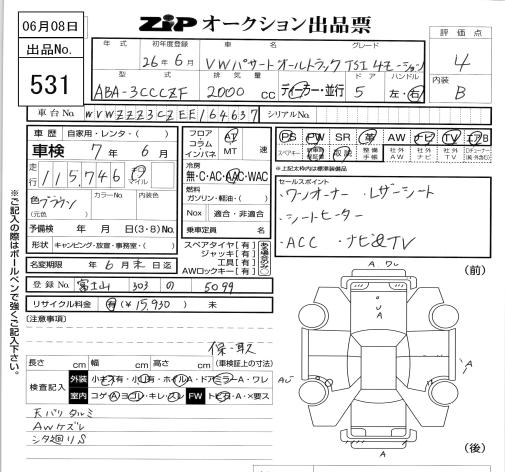 06月08日
出品No.
531
ZIP オークション出品票
評価点
4
内装
B
年式 初年度登録 車名 グレード
26年6月 VWパサートオールトラック TSI 4モーション
型式 排気量 ドア ハンドル
ABA-3CCCZF 2000 cc ディーラー・並行 5 左・右
車台No. WVWZZZ3CZEE164637 シリアルNo.
車歴 自家用・レンタ・( )
車検 7年 6月
走行 115,746 km マイル
色 ブラウン (元色) カラーNo. 内装色
予備検 年 月 日(3・8)No.
形状 キャンピング・放宣・事務室・( )
名変期限 年 6月 末 日迄
フロア コラム インパネ AT MT 速
冷房
無・C・AC・AAC・WAC
燃料
ガソリン・軽油・( )
Nox 適合・非適合
乗車定員 名
スペアタイヤ[有]
ジャッキ[有]
工具[有]
AWロックキー[有]
PS PW SR 革 AW ナビ TV エアB
スペアキー 取説 整備手帳 社外AW 社外ナビ 社外TV
セールスポイント
・ワンオーナー ・レザーシート
・シートヒーター
・ACC ・ナビ&TV
登録No. 富士山 303 の 5099
リサイクル料金 有(¥15,930) 未
(注意事項)
保・取
長さ cm 幅 cm 高さ cm (車検証上の寸法)
検査記入 外装 小キズ有・小凹有・ホイルA・ドアミラーA・ワレ
室内 コゲ・A・ヨゴレ・キレ・スレ FW トビ石・A・×要ス
天バリタルミ
AWケズレ
シタ廻りS
※ご記入の際はボールペンで強くご記入下さい。
(前)
A ワレ
U
A
AU
A
A
(後)